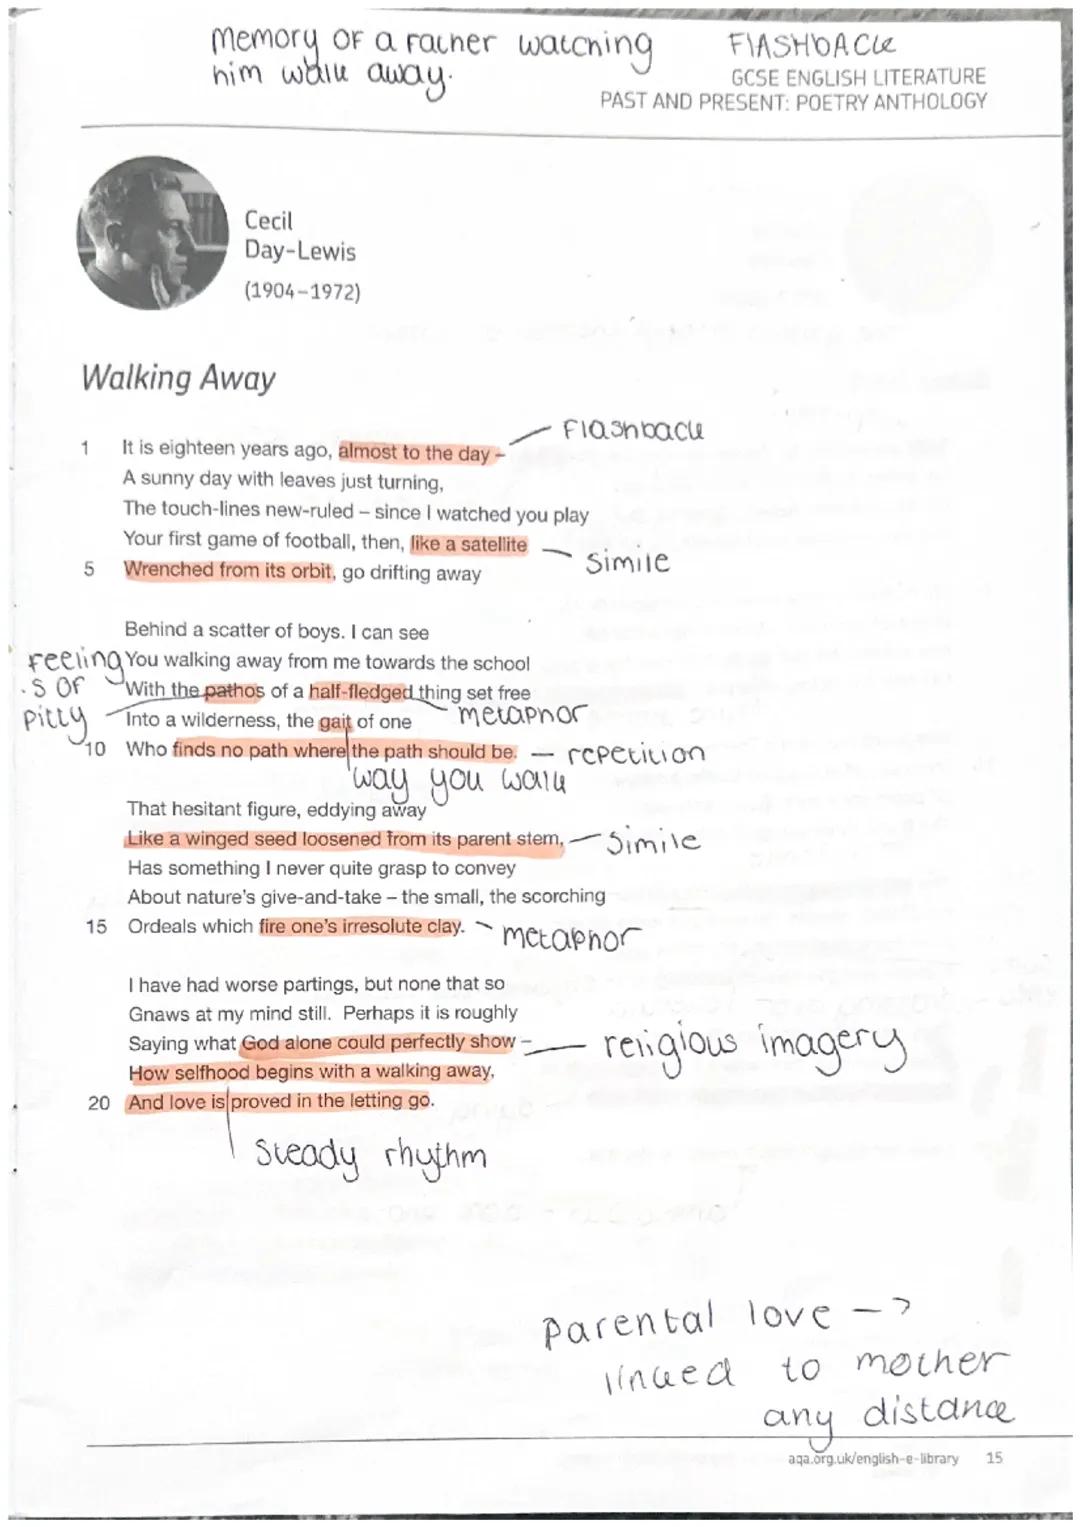 Memory of a father watching
him walk away.
FLASHBACK
GCSE ENGLISH LITERATURE
PAST AND PRESENT: POETRY ANTHOLOGY
Cecil
Day-Lewis
(1904–1972)
Walking Away
Flashback
1 It is eighteen years ago, almost to the day –
A sunny day with leaves just turning,
The touch-lines new-ruled – since I watched you play
Your first game of football, then, like a satellite
Simile
5 Wrenched from its orbit, go drifting away
Behind a scatter of boys. I can see
Feeling
You walking away from me towards the school
.s of
With the pathos of a half-fledged thing set free
pitty
metaphor
Into a wilderness, the gait of one
10 Who finds no path where the path should be.
repetition
way you walk
That hesitant figure, eddying away
Like a winged seed loosened from its parent stem,
Simile
Has something I never quite grasp to convey
About nature's give-and-take – the small, the scorching
15 Ordeals which fire one's irresolute clay.
metaphor
I have had worse partings, but none that so
Gnaws at my mind still. Perhaps it is roughly
Saying what God alone could perfectly show –
religious imagery
How selfhood begins with a walking away,
20 And love is proved in the letting go.
Steady rhythm
Parental love –>
linked to mother
any distance
aqa.org.uk/english-e-library 15